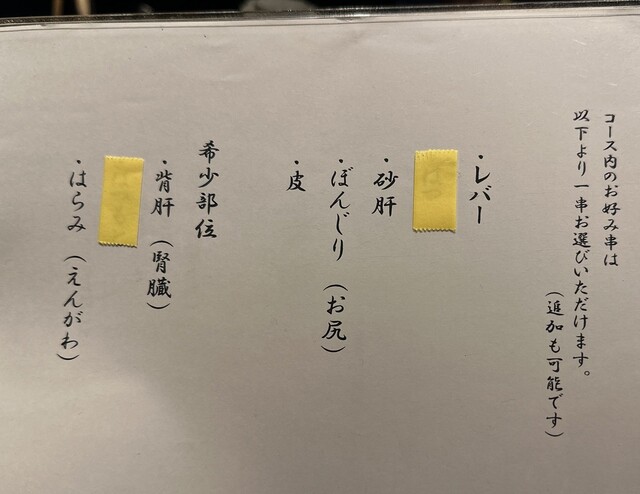 コース内のお好み串は
以下より一串お選びいただけます。
（追加も可能です）
・レバー
・砂肝
・ぼんじり（お尻）
・皮
希少部位
・背肝（腎臓）
・はらみ（えんがわ）